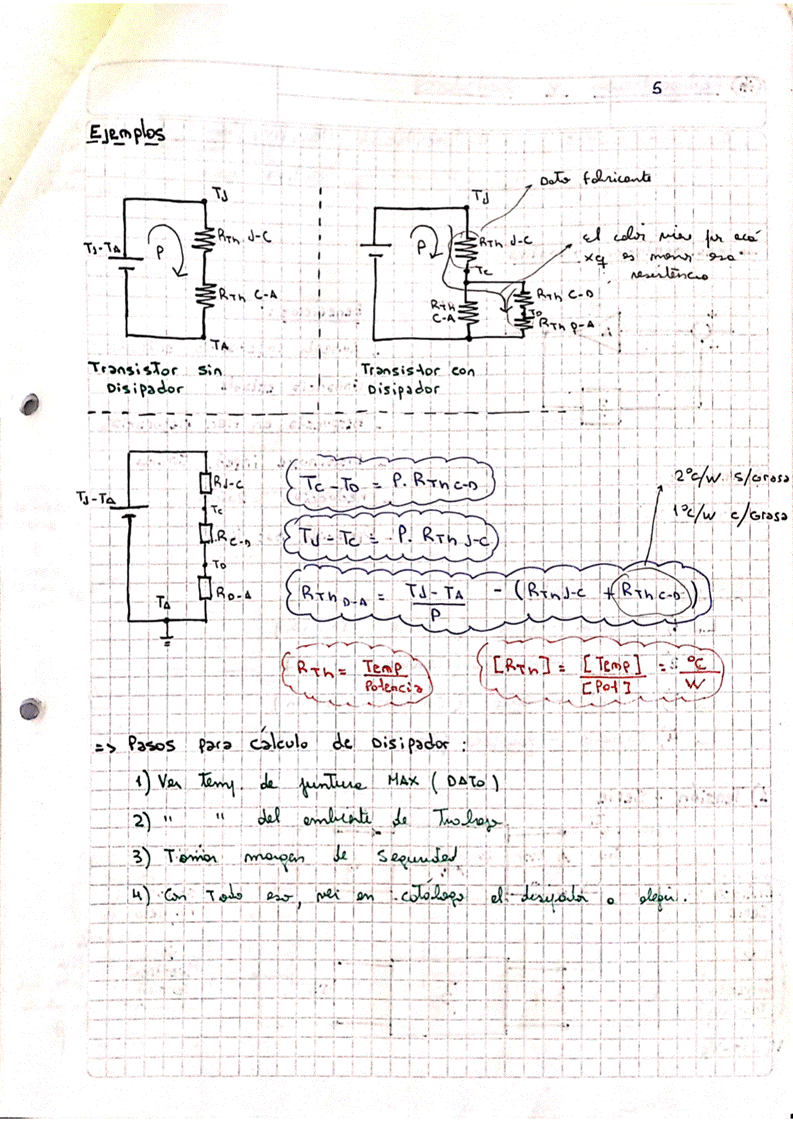 5
Ejemplos
TJ
TJ-TA
P
RTh J-C
RTh C-A
TA
Transistor sin
Disipador
TJ
Dato fabricante
P
RTh J-C
TC
El calor viaja por acá
xq es menor esa
resistencia
RTh
C-A
RTh C-D
TD
RTh D-A
Transistor con
Disipador
TJ-TA
RJ-C
TC
RC-D
TD
RD-A
TA
TC - TD = P. RTh C-D
TJ - TC = P. RTh J-C
2°C/W s/Grasa
1°C/W c/Grasa
RTh D-A = TJ - TA / P - (RTh J-C + RTh C-D)
RTh = Temp / Potencia
[RTh] = [Temp] / [Pot] = °C / W
=> Pasos para cálculo de Disipador:
1) Ver temp. de juntura MAX (DATO)
2) " " del ambiente de Trabajo
3) Tomar margen de seguridad
4) Con Todo eso, ver en catálogo el disipador a elegir.